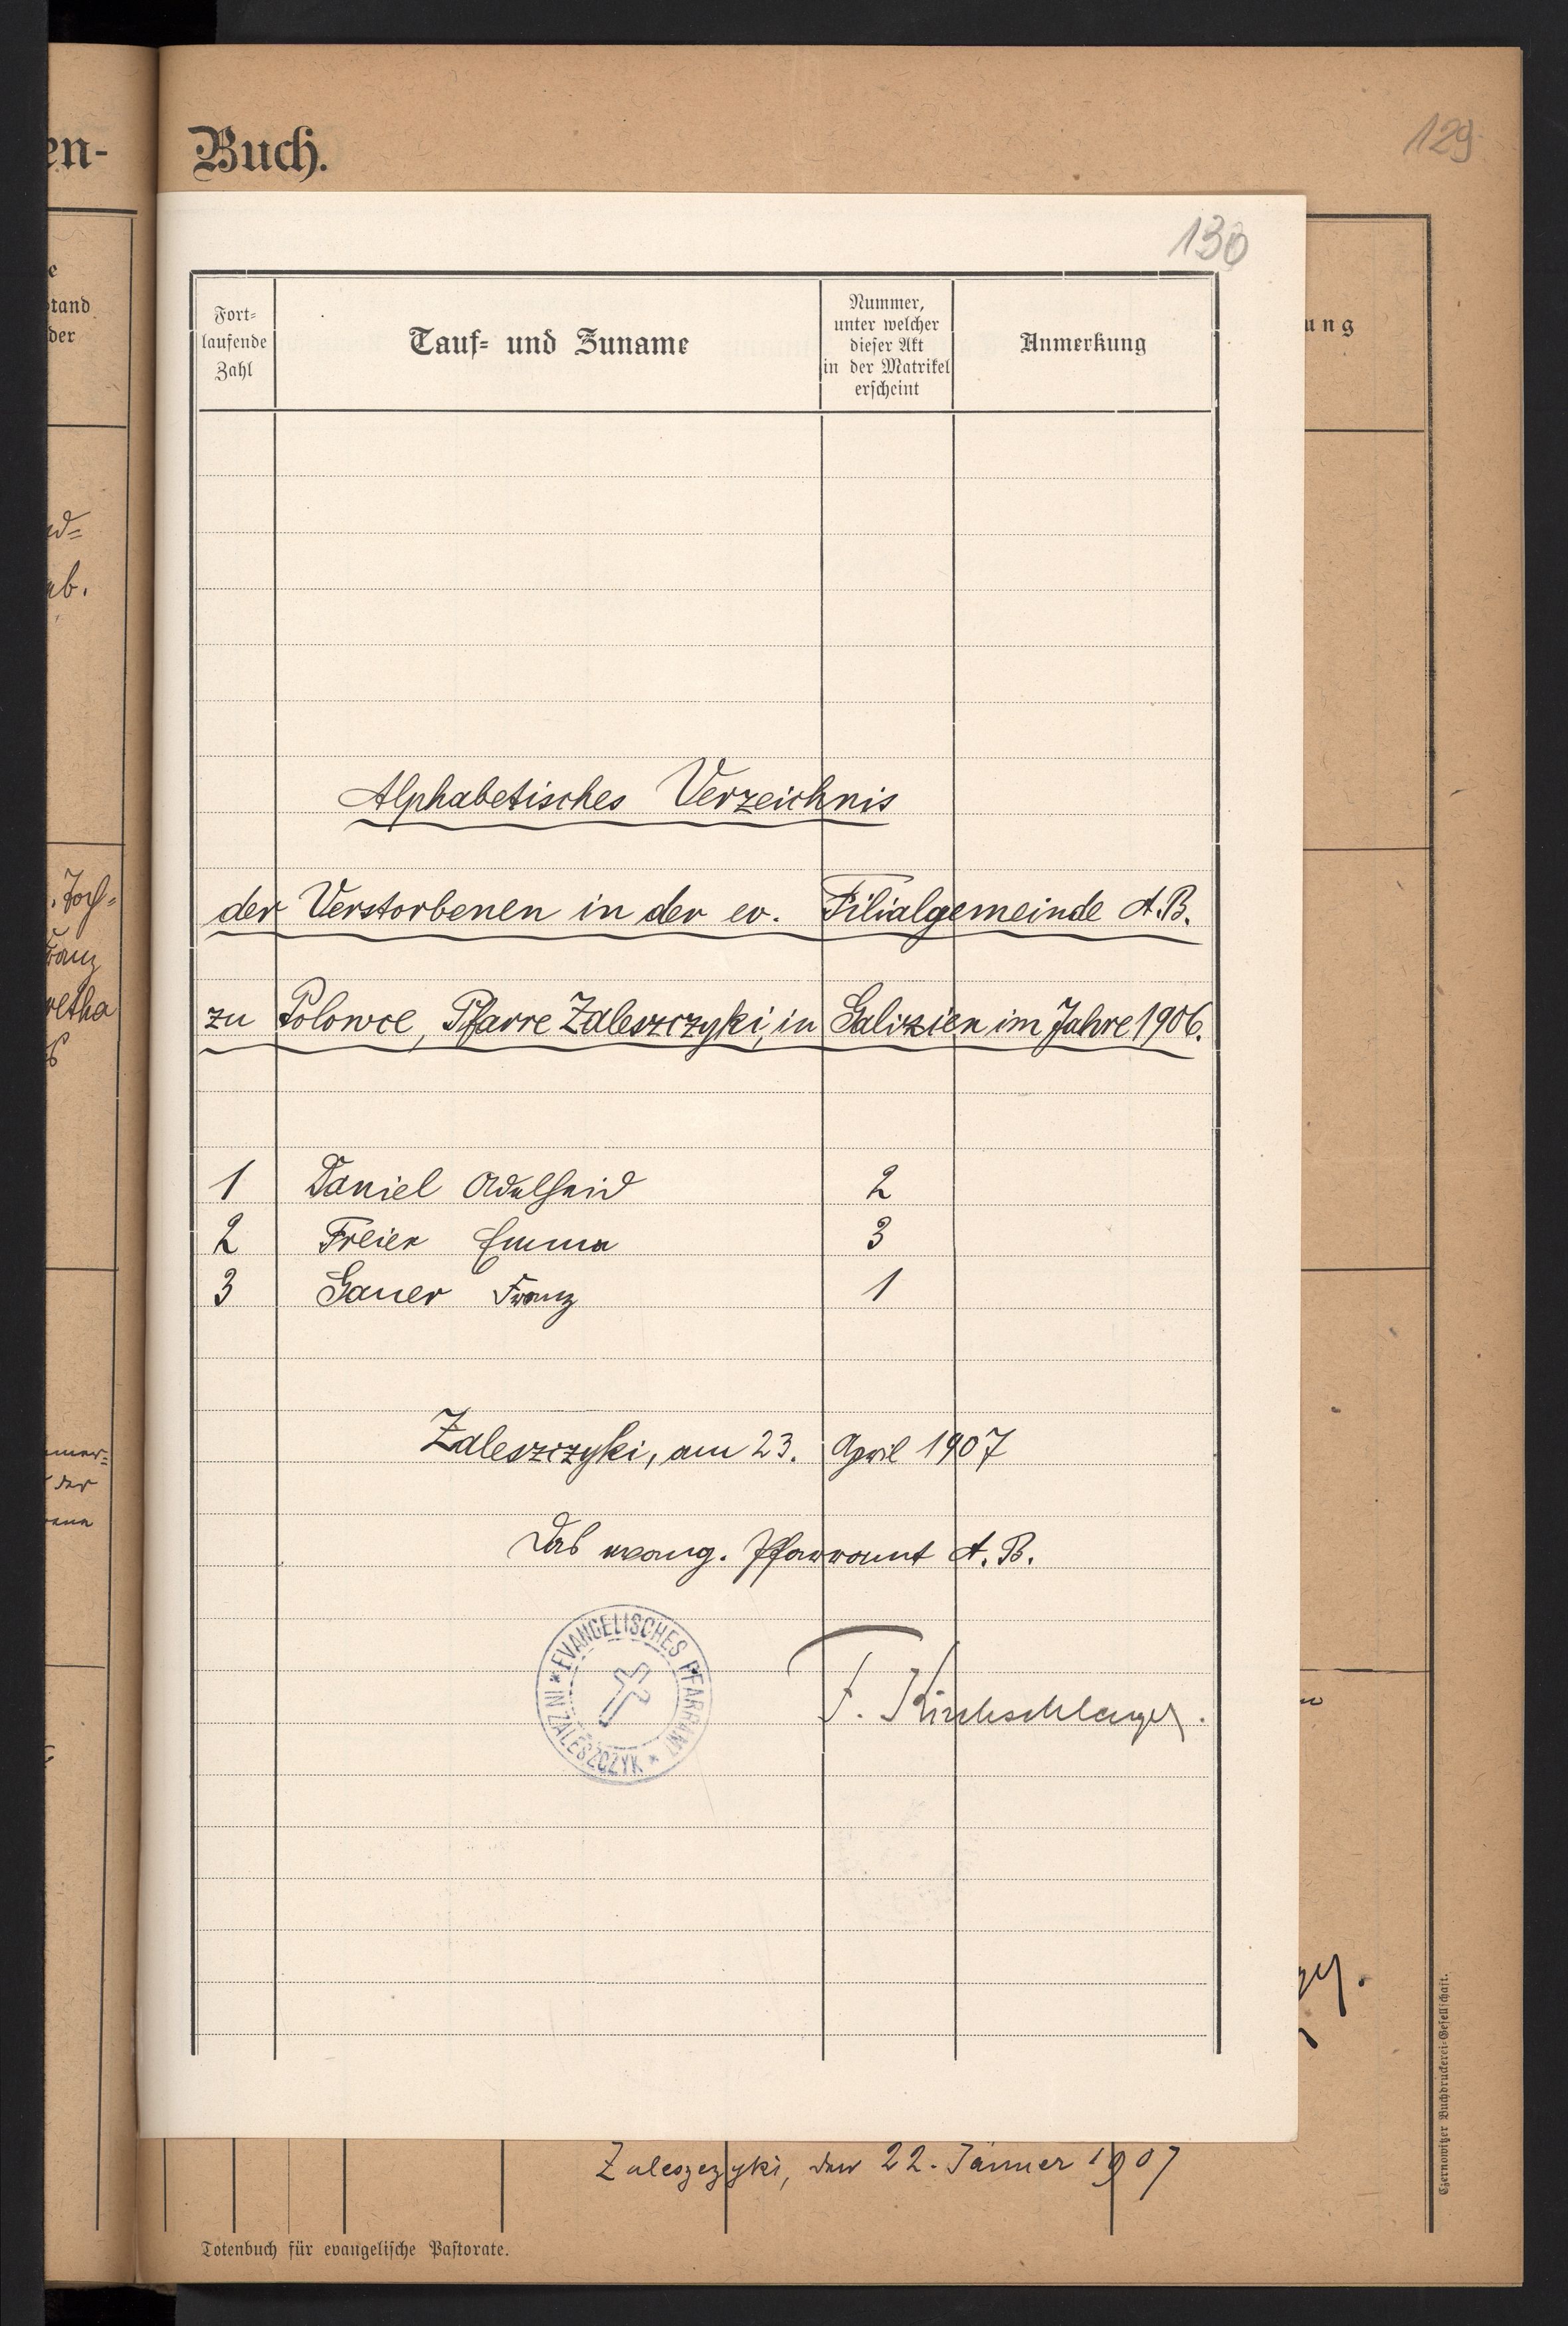 en-
Buch.
129
130
Fort-
laufende
Zahl
Tauf- und Zuname
Nummer,
unter welcher
dieser Akt
in der Matrikel
erscheint
Anmerkung
e
tand
der
ung
Alphabetisches Verzeichnis
der Verstorbenen in der ev. Filialgemeinde A.B.
zu Polowce, Pfarre Zaleszczyki, in Galizien im Jahre 1906.
1 Daniel Adelheid 2
2 Freier Emma 3
3 Gauer Franz 1
Zaleszczyki, am 23. April 1907
Das evang. Pfarramt A. B.
EVANGELISCHES PFARRAMT * IN ZALESZCZYK *
F. Kirchschlager.
Zaleszczyki, den 22. Jänner 1907
Totenbuch für evangelische Pastorate.
Czernowitzer Buchdruckerei-Gesellschaft.